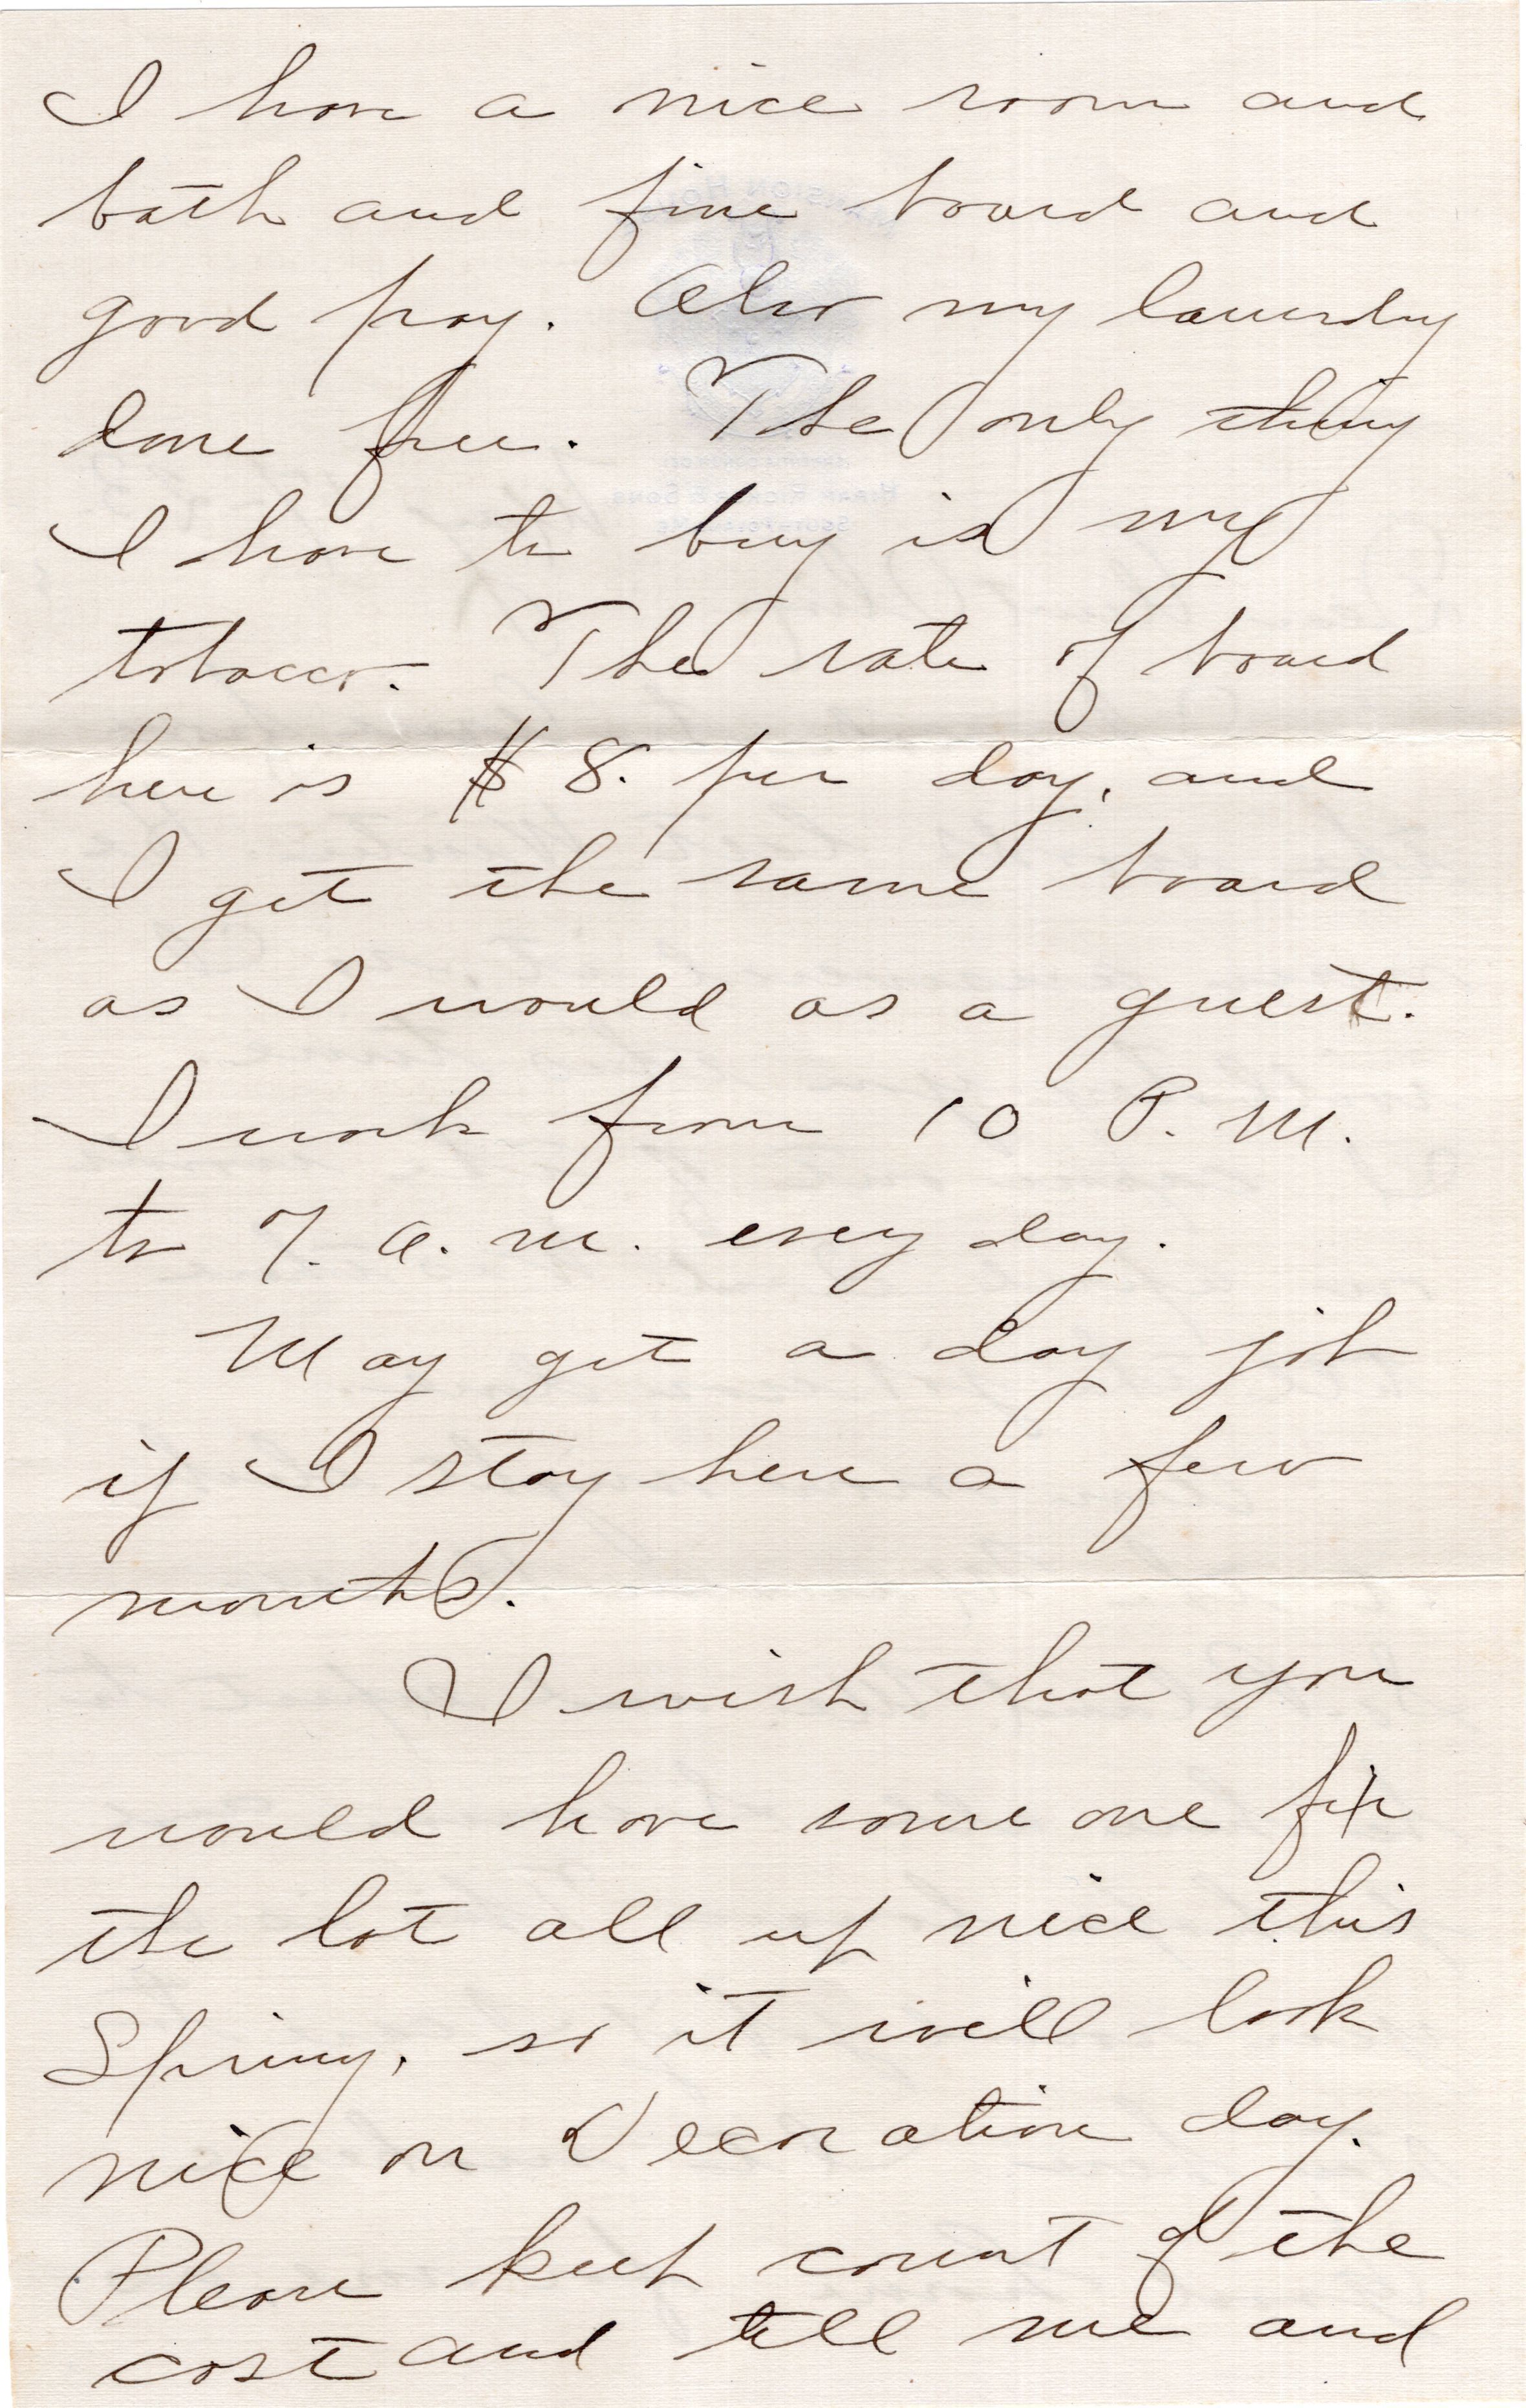 I have a nice room and
bath and fine board and
good pay. Also my laundry
done free. The only thing
I have to buy is my
tobacco. The rate of board
here is $8. per day, and
I get the same board
as I would as a guest.
I work from 10 P.M.
to 7. a.m. every day.
May get a day job
if I stay here a few
months.
I wish that you
would have some one fix
the lot all up nice this
Spring, so it will look
nice on Decoration day.
Please keep count of the
cost and tell me and